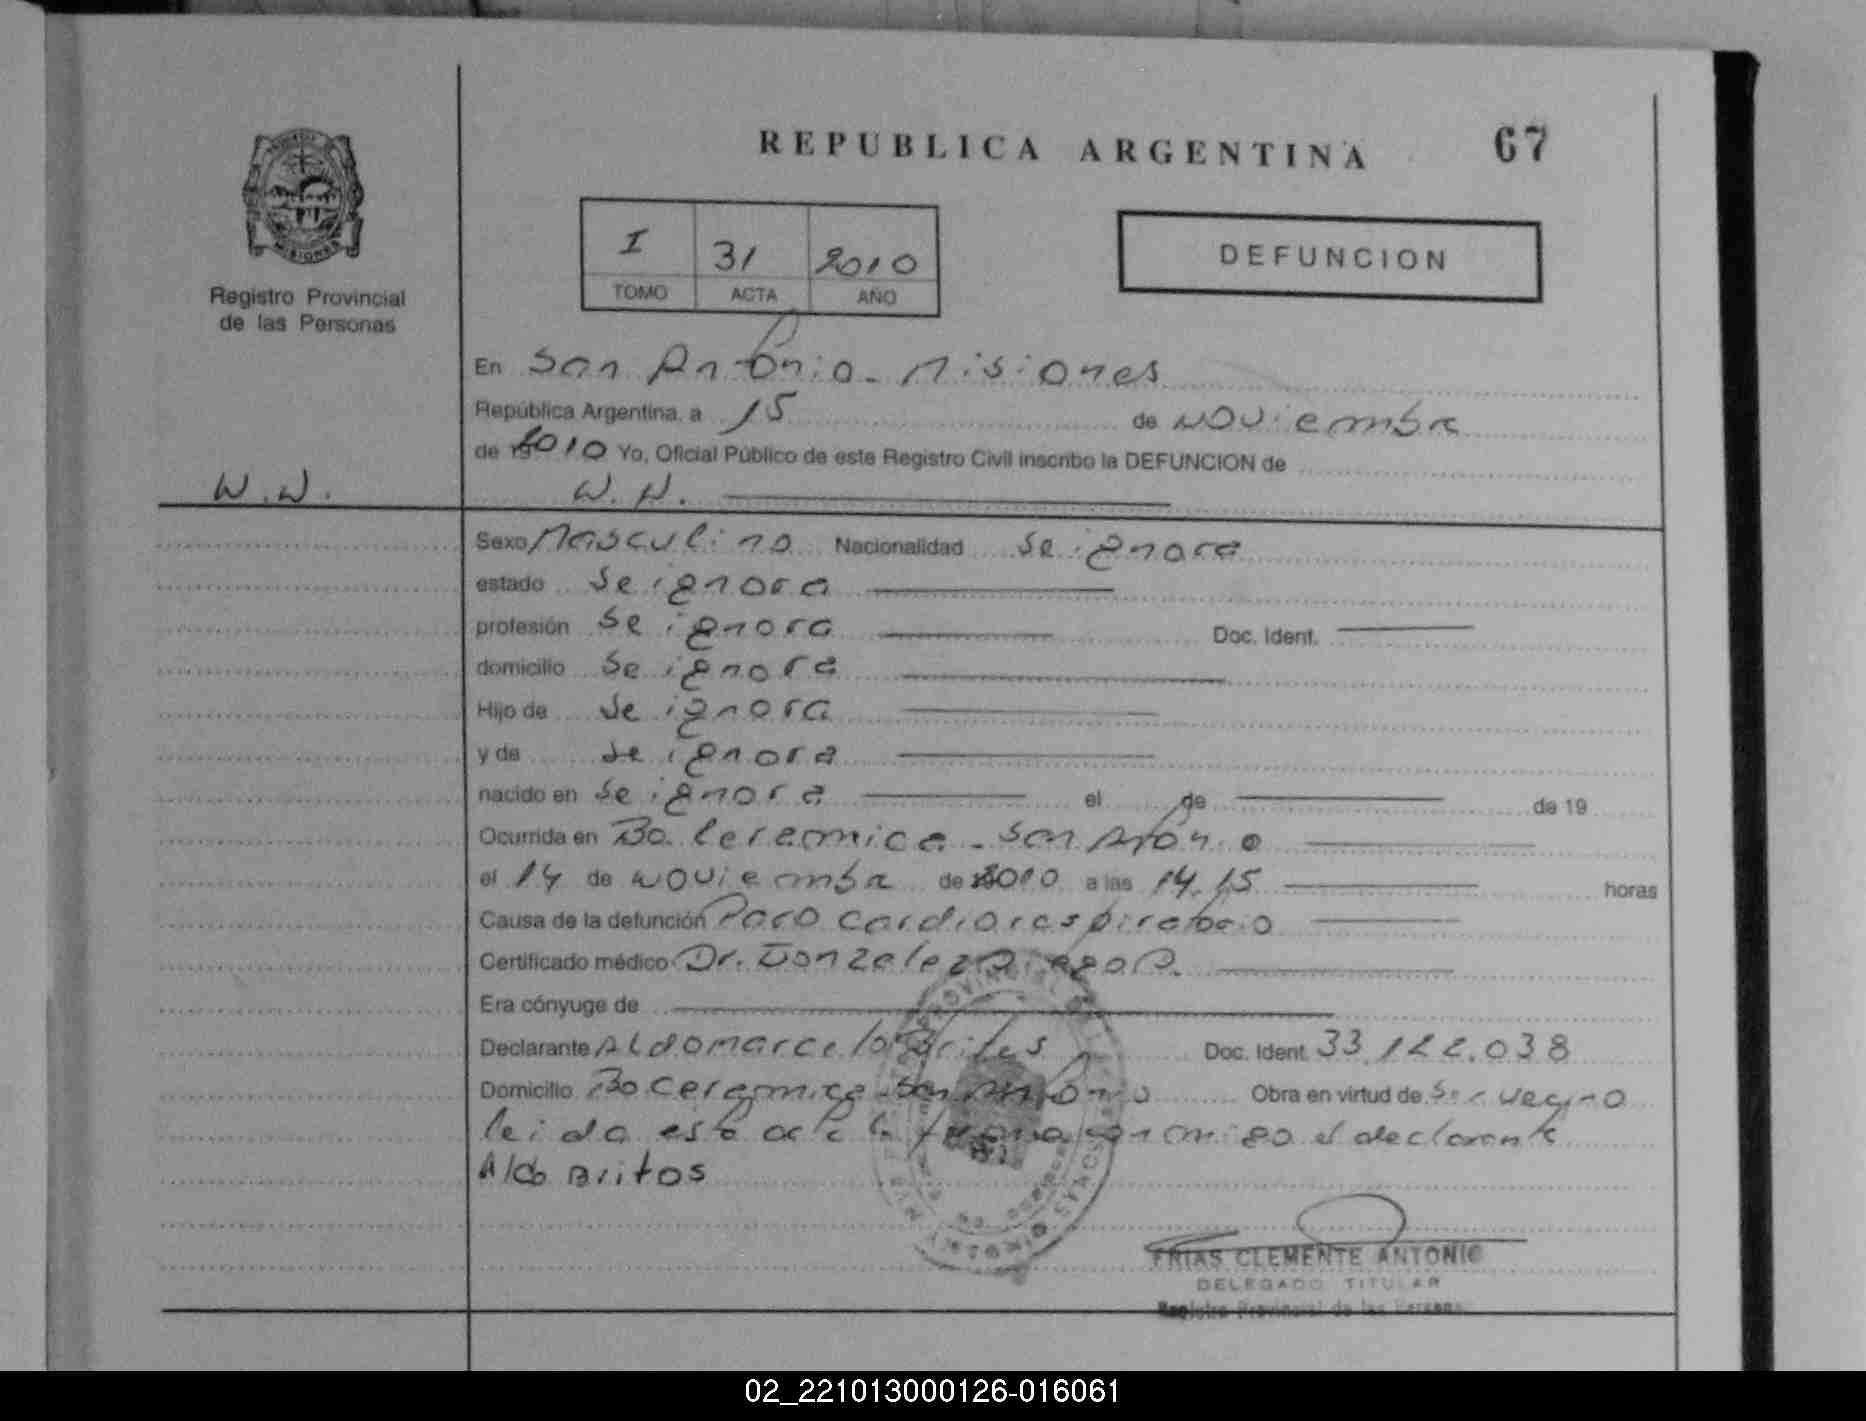 REPUBLICA ARGENTINA 67
I 31 2010
TOMO ACTA AÑO
DEFUNCION
MISIONES
Registro Provincial
de las Personas
En San Antonio - Misiones
República Argentina, a 15 de Noviembre
de 2010 Yo, Oficial Público de este Registro Civil inscribo la DEFUNCION de
N.N. N.N.
Sexo Masculino Nacionalidad Se ignora
estado Se ignora
profesión Se ignora Doc. Ident.
domicilio Se ignora
Hijo de Se ignora
y de Se ignora
nacido en Se ignora el de de 19
Ocurrida en Bo. Ceramica - San Antonio
el 14 de Noviembre de 2010 a las 14,15 horas
Causa de la defunción Paro cardiorespiratorio
Certificado médico Dr. Gonzalez Diego
Era cónyuge de
Declarante Aldo Marcelo Doc. Ident. 33.122.038
Domicilio Bo Ceramica - San Antonio Obra en virtud de
leida esta acta la firma conmigo el declarante
Aldo Britos
FRIAS CLEMENTE ANTONIO
DELEGADO TITULAR
Registro Provincial de las Personas
02_221013000126-016061